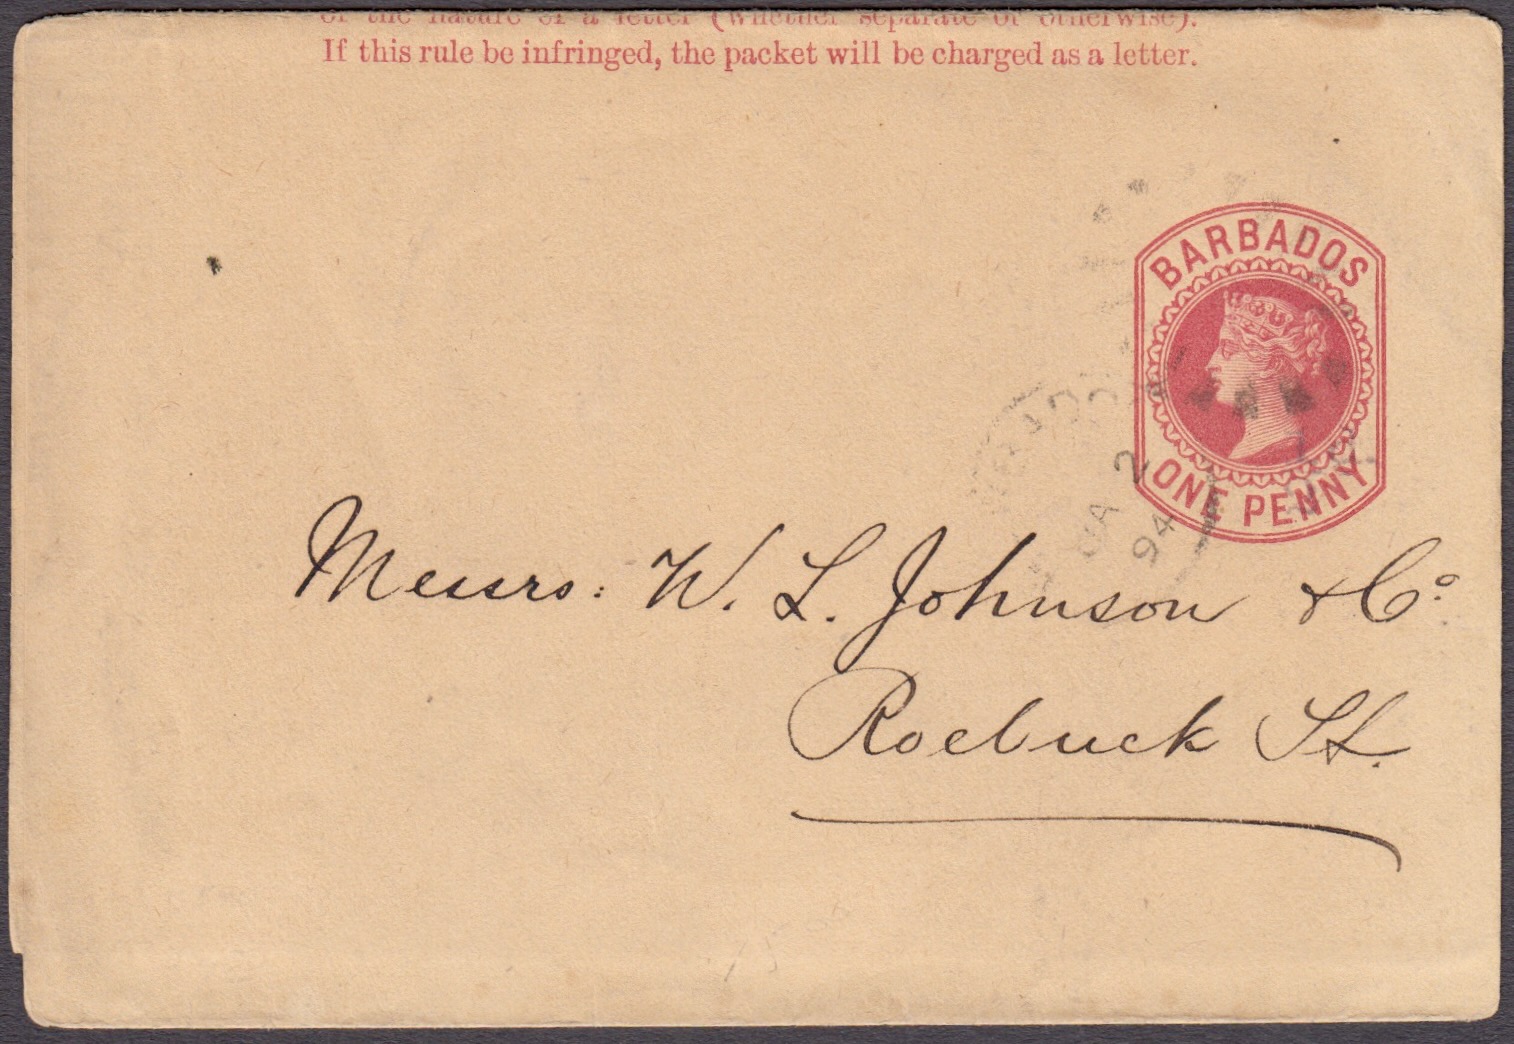 of the nature of a letter (whether separate or otherwise).
If this rule be infringed, the packet will be charged as a letter.
BARBADOS
ONE PENNY
JA 2
94
Messrs: W. L. Johnson & Co.
Roebuck St.